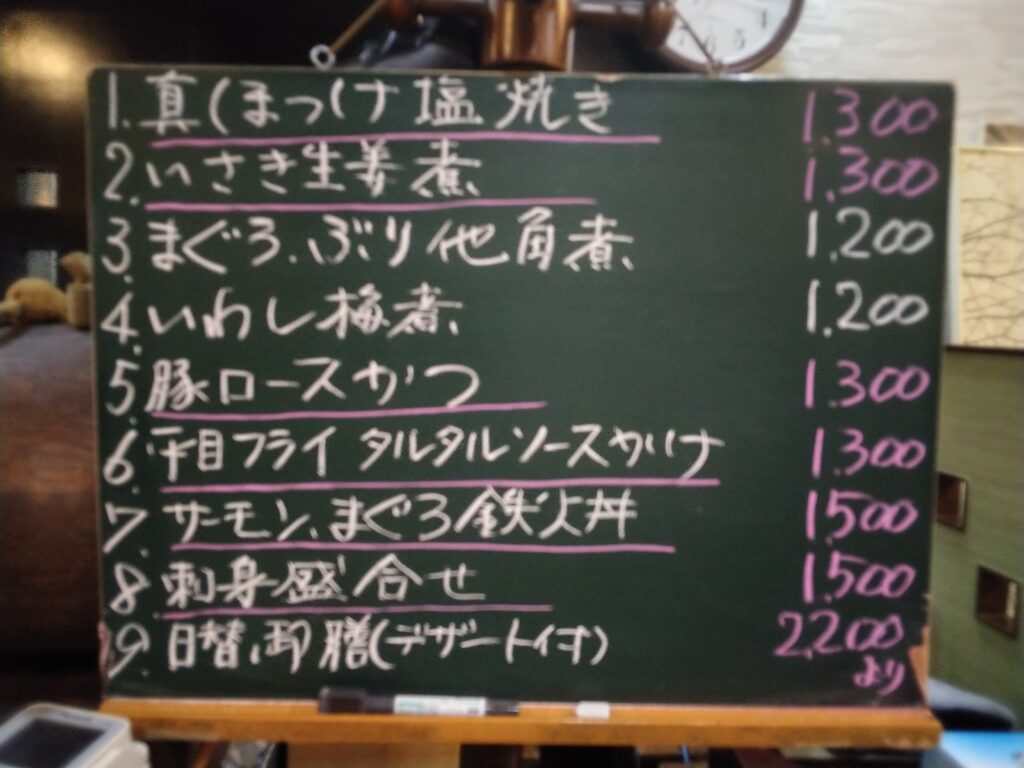 1. 真ほっけ 塩焼き 1,300
2. いさき生姜煮 1,300
3. まぐろ、ぶり他角煮 1,200
4. いわし梅煮 1,200
5. 豚ロースかつ 1,300
6. 平目フライ タルタルソースかけ 1,300
7. サーモン、まぐろ鉄火丼 1,500
8. 刺身盛合せ 1,500
9. 日替り御膳(デザート付) 2,200
より